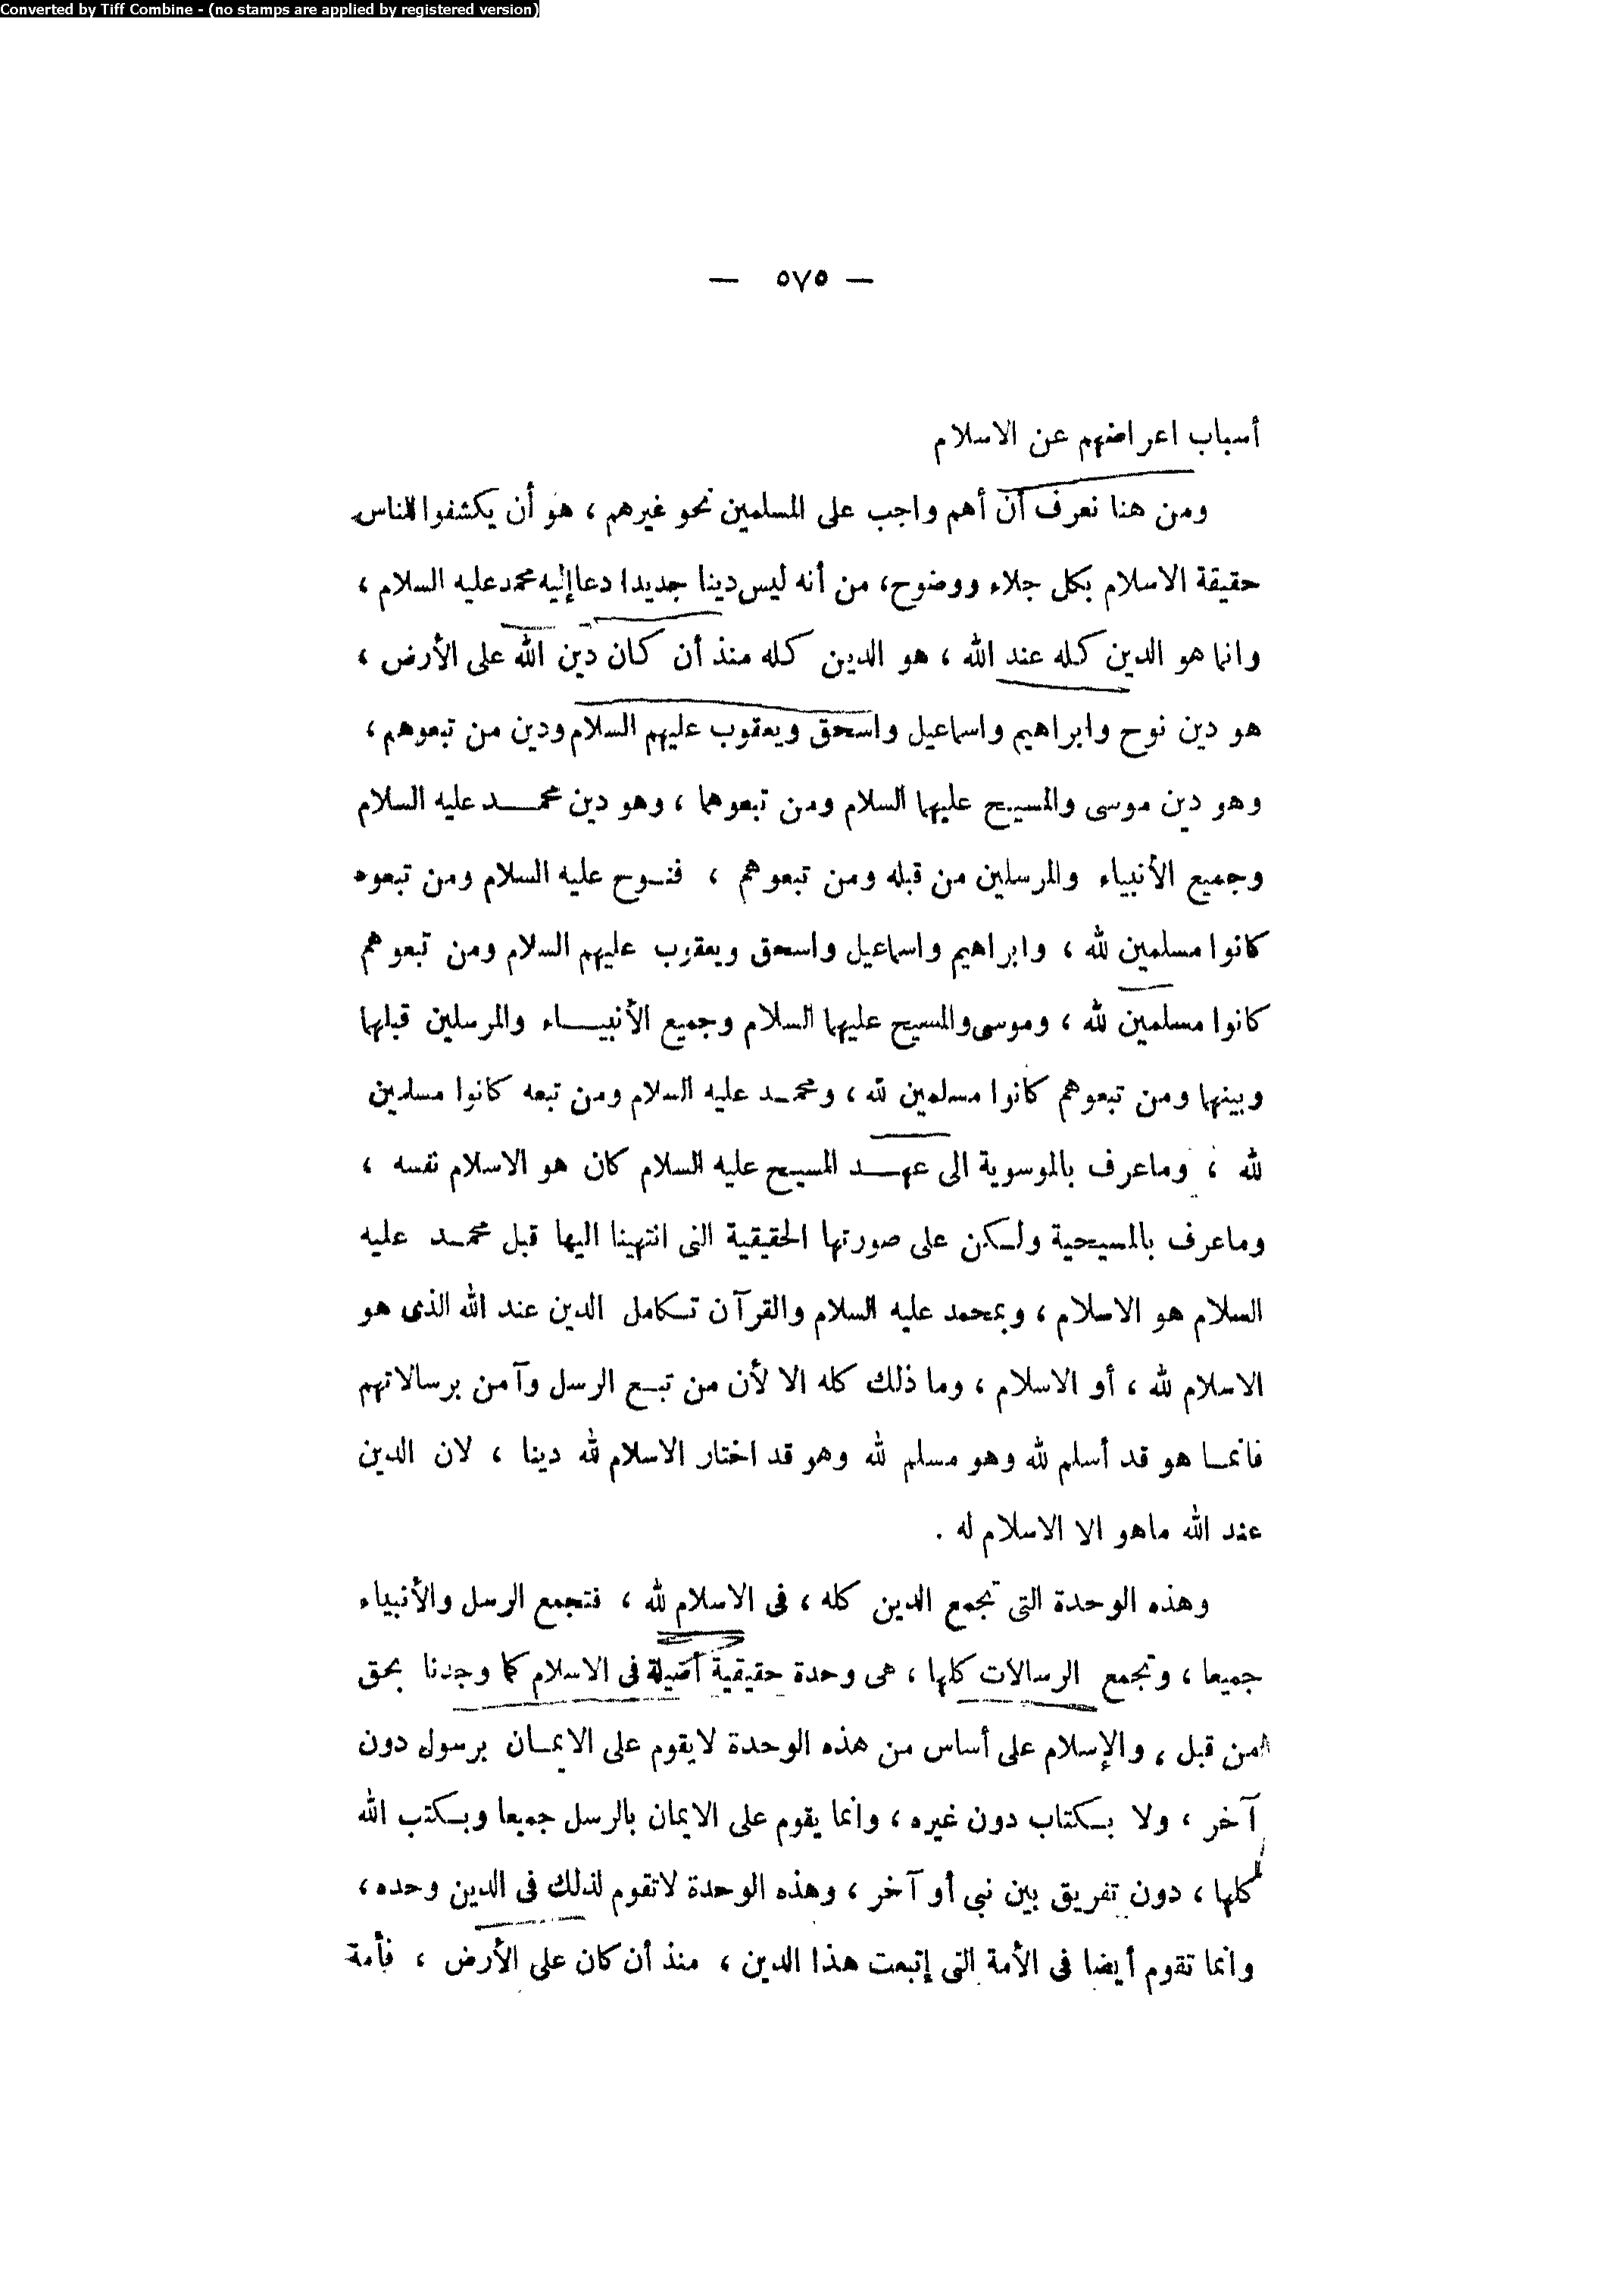 Converted by Tiff Combine - (no stamps are applied by registered version)
— ٥٧٥ —
أسباب اعراضهم عن الاسلام
ومن هنا نعرف أن أهم واجب على المسلمين نحو غيرهم ، هو أن يكشفوا للناس
حقيقة الاسلام بكل جلاء ووضوح، من أنه ليس دينا جديدا دعا إليه محمد عليه السلام ،
وانما هو الدين كله عند الله ، هو الدين كله منذ أن كان دين الله على الأرض ،
هو دين نوح وابراهيم واسماعيل واسحق ويعقوب عليهم السلام ودين من تبعوهم ،
وهو دين موسى والمسيح عليهما السلام ومن تبعوهما ، وهو دين محمد عليه السلام
وجميع الأنبياء والمرسلين من قبله ومن تبعوهم ، فنوح عليه السلام ومن تبعوه
كانوا مسلمين لله ، وابراهيم واسماعيل واسحق ويعقوب عليهم السلام ومن تبعوهم
كانوا مسلمين لله ، وموسى والمسيح عليهما السلام وجميع الأنبياء والمرسلين قبلهما
وبينهما ومن تبعوهم كانوا مسلمين لله ، ومحمد عليه السلام ومن تبعه كانوا مسلمين
لله ، وماعرف بالموسوية الى عهد المسيح عليه السلام كان هو الاسلام نفسه ،
وماعرف بالمسيحية ولكن على صورتها الحقيقية التى انتهينا اليها قبل محمد عليه
السلام هو الاسلام ، وبمحمد عليه السلام والقرآن تكامل الدين عند الله الذى هو
الاسلام لله ، أو الاسلام ، وما ذلك كله الا لأن من تبع الرسل وآمن برسالاتهم
فانما هو قد أسلم لله وهو مسلم لله وهو قد اختار الاسلام لله دينا ، لان الدين
عند الله ماهو الا الاسلام له .
وهذه الوحدة التى تجمع الدين كله ، فى الاسلام لله ، فتجمع الرسل والأنبياء
جميعا ، وتجمع الرسالات كلها ، هى وحدة حقيقية أصيلة فى الاسلام كما وجدنا بحق
من قبل ، والإسلام على أساس من هذه الوحدة لايقوم على الايمان برسول دون
آخر ، ولا بكتاب دون غيره ، وانما يقوم على الايمان بالرسل جميعا وبكتب الله
كلها ، دون تفريق بين نبى أو آخر ، وهذه الوحدة لاتقوم لذلك فى الدين وحده ،
وانما تقوم أيضا فى الأمة التى إتبعت هذا الدين ، منذ أن كان على الأرض ، فأمة